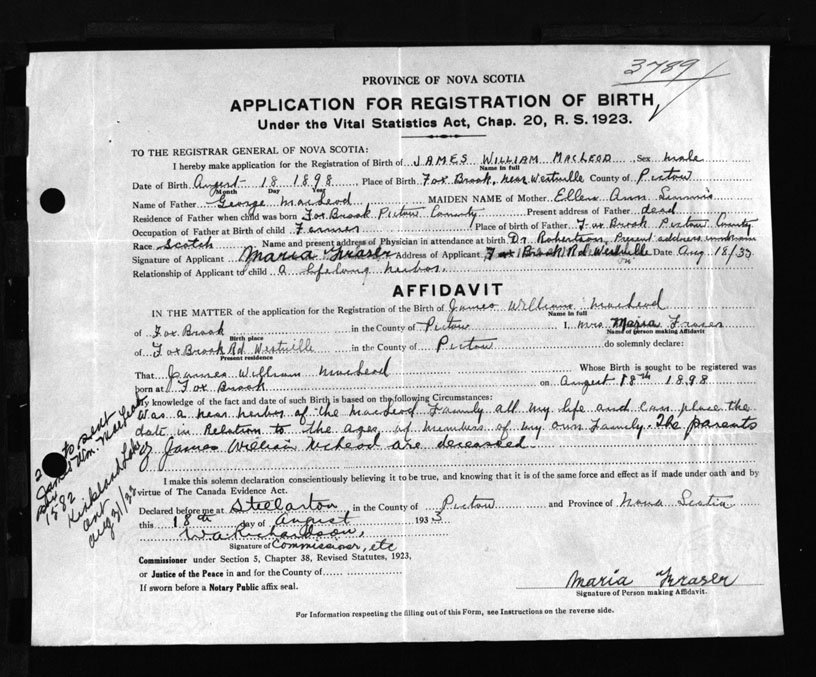 3789
PROVINCE OF NOVA SCOTIA
APPLICATION FOR REGISTRATION OF BIRTH
Under the Vital Statistics Act, Chap. 20, R. S. 1923.
TO THE REGISTRAR GENERAL OF NOVA SCOTIA:
I hereby make application for the Registration of Birth of JAMES WILLIAM MACLEOD, Sex male
Name in full
Date of Birth August 18 1898, Place of Birth Fox Brook, near Westville County of Pictou
Month Day Year
Name of Father George MacLeod MAIDEN NAME of Mother Ellen Ann
Residence of Father when child was born Fox Brook Pictou County Present address of Father dead
Occupation of Father at Birth of child Farmer Place of birth of Father Fox Brook Pictou County
Race Scotch Name and present address of Physician in attendance at birth Dr Robertson, Present address unknown
Signature of Applicant Maria Fraser Address of Applicant Fox Brook Rd Westville Date Aug 18/33
Relationship of Applicant to child a lifelong neibor.
AFFIDAVIT
IN THE MATTER of the application for the Registration of the Birth of James William MacLeod
Name in full
of Fox Brook in the County of Pictou I, Mrs Maria Fraser
Birth place Name of person making Affidavit
of Fox Brook Rd Westville in the County of Pictou do solemnly declare:
Present residence
That James William MacLeod Whose Birth is sought to be registered was
born at Fox Brook on August 18th 1898
My knowledge of the fact and date of such Birth is based on the following Circumstances:
Was a near neibor of the MacLeod Family all my life and can place the
date in Relation to the ages of members of my own Family. The parents
of James William McLeod are deceased.
I make this solemn declaration conscientiously believing it to be true, and knowing that it is of the same force and effect as if made under oath and by
virtue of The Canada Evidence Act.
Declared before me at Stellarton in the County of Pictou and Province of Nova Scotia
this 18th day of August 1933
W A Richardson,
Signature of Commissioner, etc
Commissioner under Section 5, Chapter 38, Revised Statutes, 1923,
or Justice of the Peace in and for the County of
If sworn before a Notary Public affix seal.
Maria Fraser
Signature of Person making Affidavit.
For Information respecting the filling out of this Form, see Instructions on the reverse side.
to sent
James Wm. MacLeod
1582
Kirkland Lake
Ont
Aug 31/33